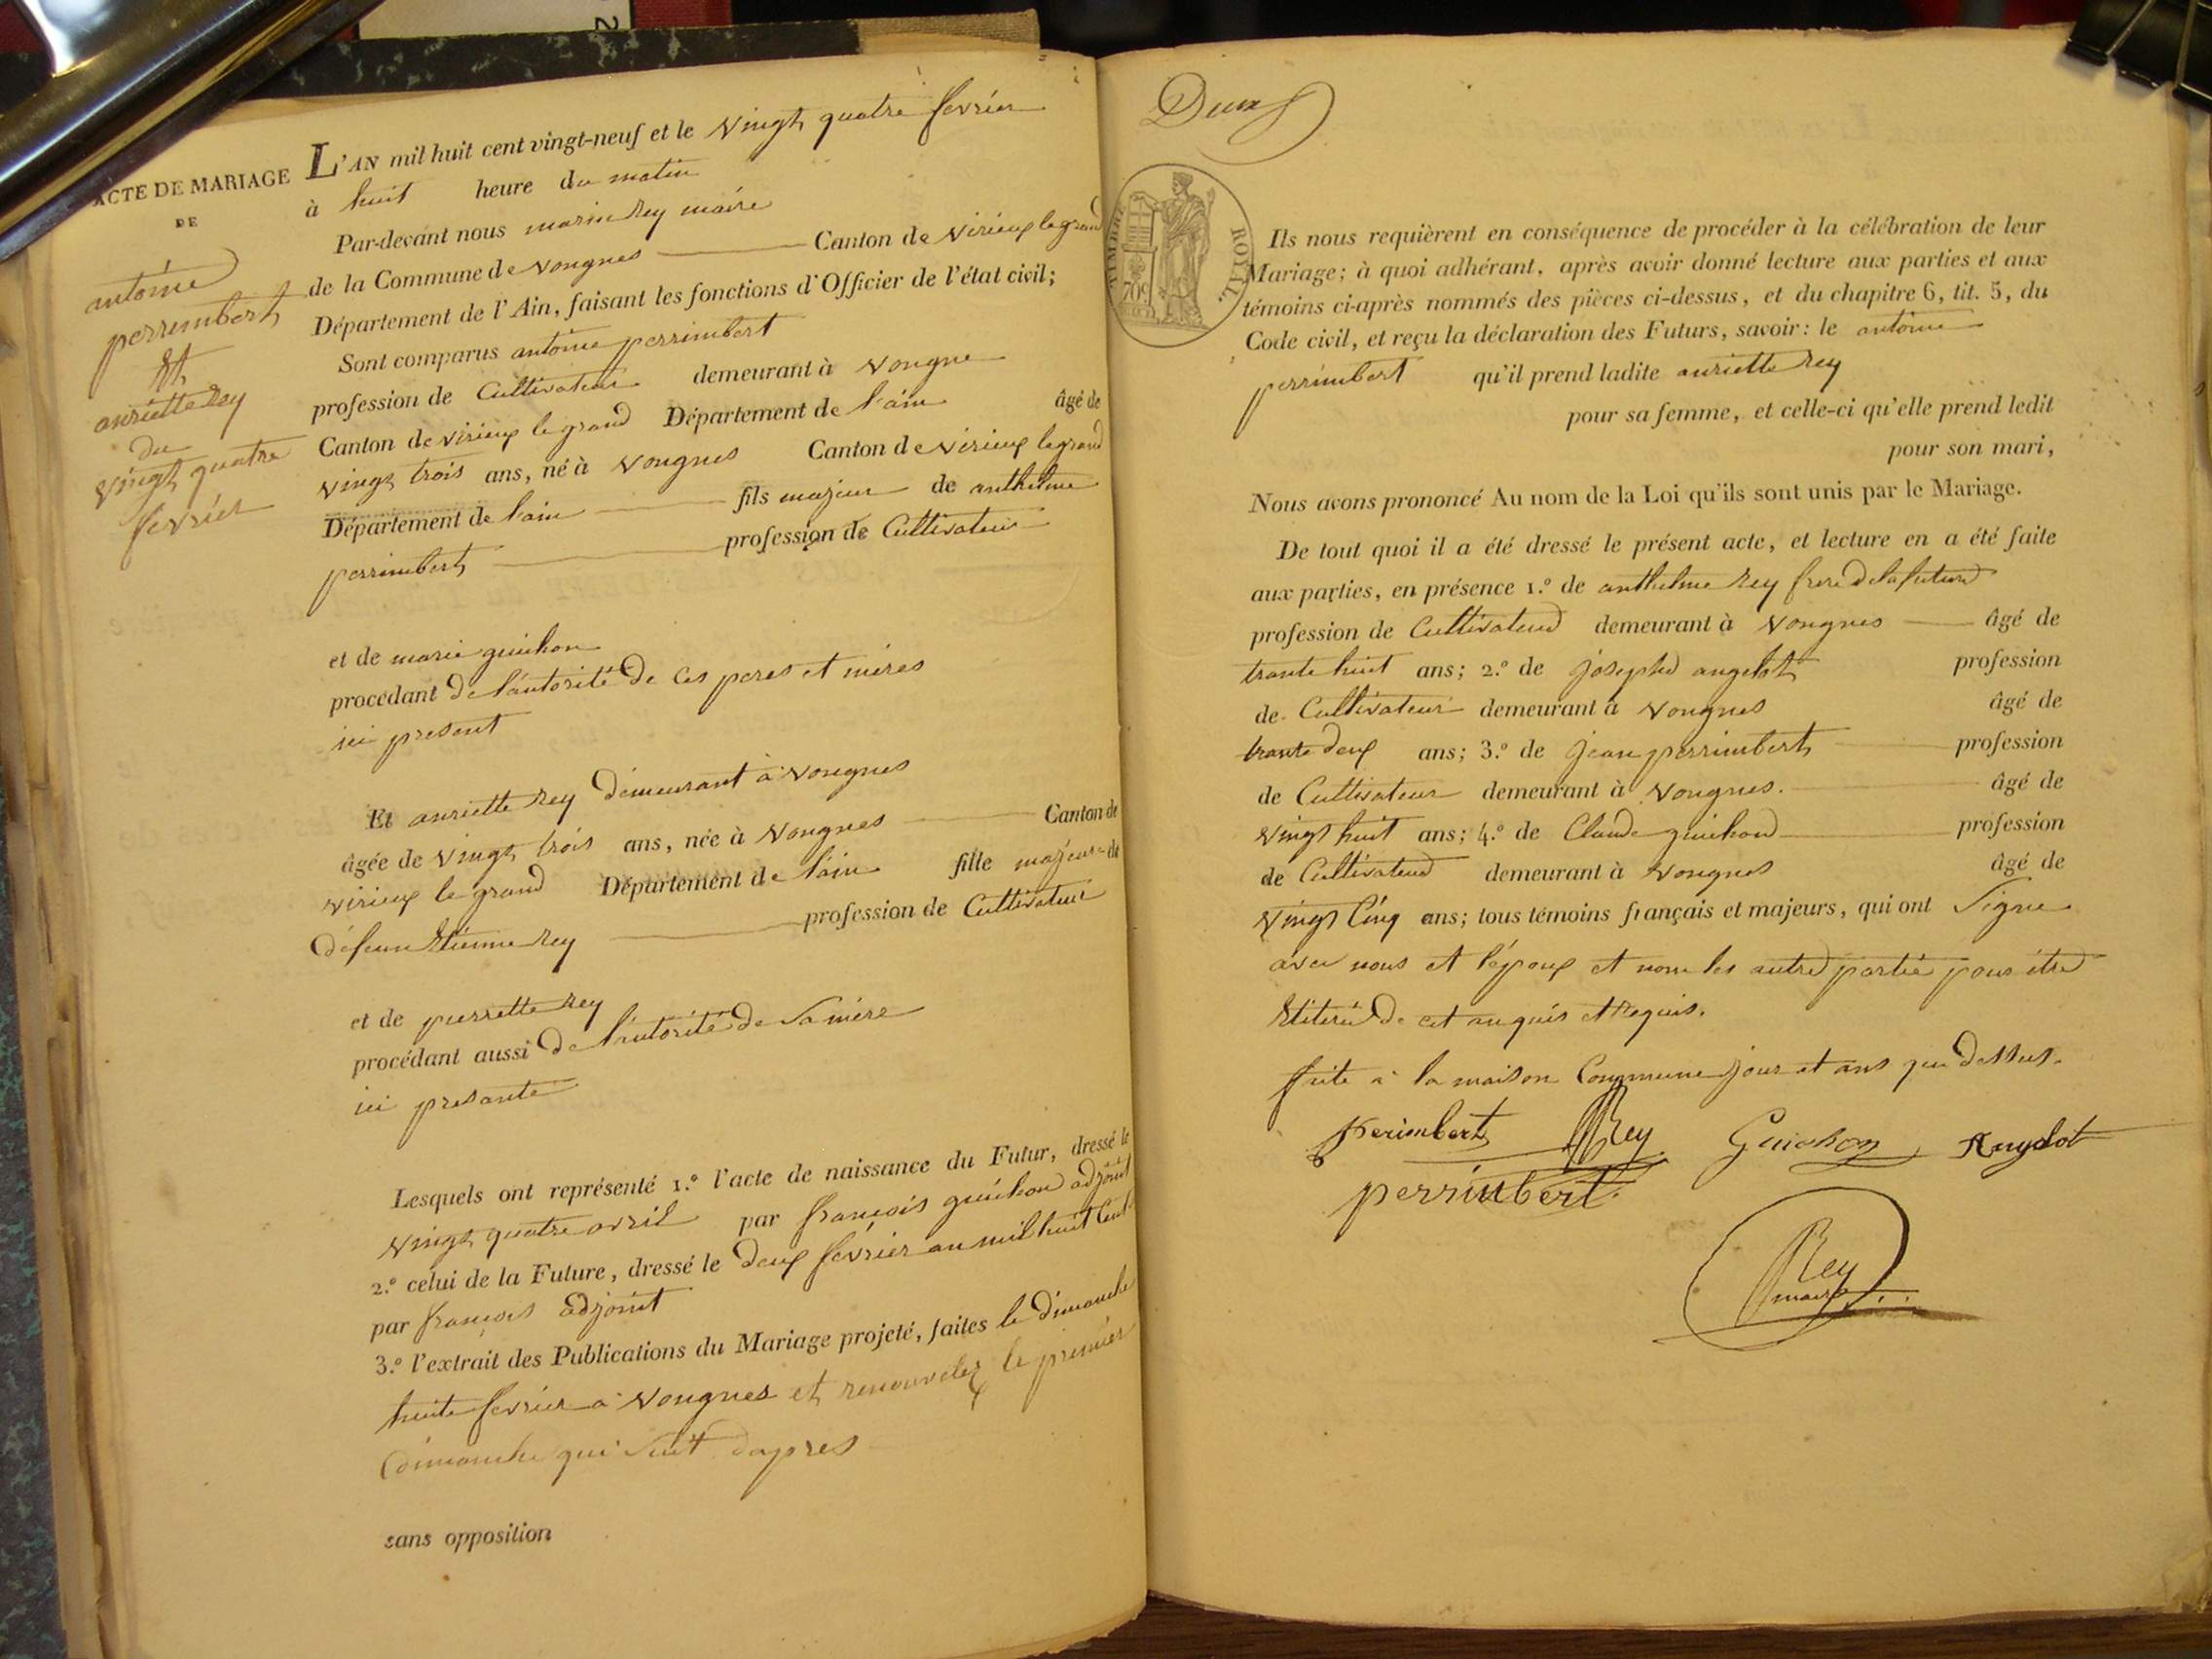 ACTE DE MARIAGE
DE
antoine
perrimbert
Et
anriette Rey
du
vingt quatre
fevrier
L'AN mil huit cent vingt-neuf et le vingt quatre fevrier
à huit heure du matin
Par-devant nous marin Rey maire
de la Commune de vongnes Canton de virieux le grand
Département de l'Ain, faisant les fonctions d'Officier de l'état civil;
Sont comparus antoine perrimbert
profession de Cultivateur demeurant à vongne
Canton de virieux le grand Département de l'ain âgé de
vingt trois ans, né à vongnes Canton de virieux le grand
Département de l'ain fils majeur de anthelme
perrimbert profession de Cultivateur
et de marie guichon
procédant de l'autorité de ces peres et mères
ici present
Et anriette Rey demeurant à vongnes
âgée de vingt trois ans, née à vongnes Canton de
virieux le grand Département de l'ain fille majeure de
défeun Etienne Rey profession de Cultivateur
et de pierrette Rey
procédant aussi de l'autorité de sa mère
ici presante
Lesquels ont représenté 1.º l'acte de naissance du Futur, dressé le
vingt quatre avril par françois guichon adjoint
2.º celui de la Future, dressé le deux fevrier an mil huit Cent
par françois adjoint
3.º l'extrait des Publications du Mariage projeté, faites le dimanche
huite fevrier a vongnes et renouvelez le premier
dimanche qui suit dapres
sans opposition
Deux
TIMBRE ROYAL
70c
Ils nous requièrent en conséquence de procéder à la célébration de leur
Mariage; à quoi adhérant, après avoir donné lecture aux parties et aux
témoins ci-après nommés des pièces ci-dessus, et du chapitre 6, tit. 5, du
Code civil, et reçu la déclaration des Futurs, savoir: le antoine
perrimbert qu'il prend ladite anriette Rey
pour sa femme, et celle-ci qu'elle prend ledit
pour son mari,
Nous avons prononcé Au nom de la Loi qu'ils sont unis par le Mariage.
De tout quoi il a été dressé le présent acte, et lecture en a été faite
aux parties, en présence 1.º de anthelme Rey frere de la future
profession de Cultivateur demeurant à vongnes âgé de
trante huit ans; 2.º de joseph angelot profession
de Cultivateur demeurant à vongnes âgé de
trante deux ans; 3.º de jean perrimbert profession
de Cultivateur demeurant à vongnes. âgé de
vingt huit ans; 4.º de Claude guichon profession
de Cultivateur demeurant à vongnes âgé de
vingt Cinq ans; tous témoins français et majeurs, qui ont signe
avec nous et l'époux et non les autre partie pour être
de cet anquis et Requis.
faite a la maison Commune jour et ans que dessus.
perimbert Rey Guichon Angelot
perrimbert
Rey
maire